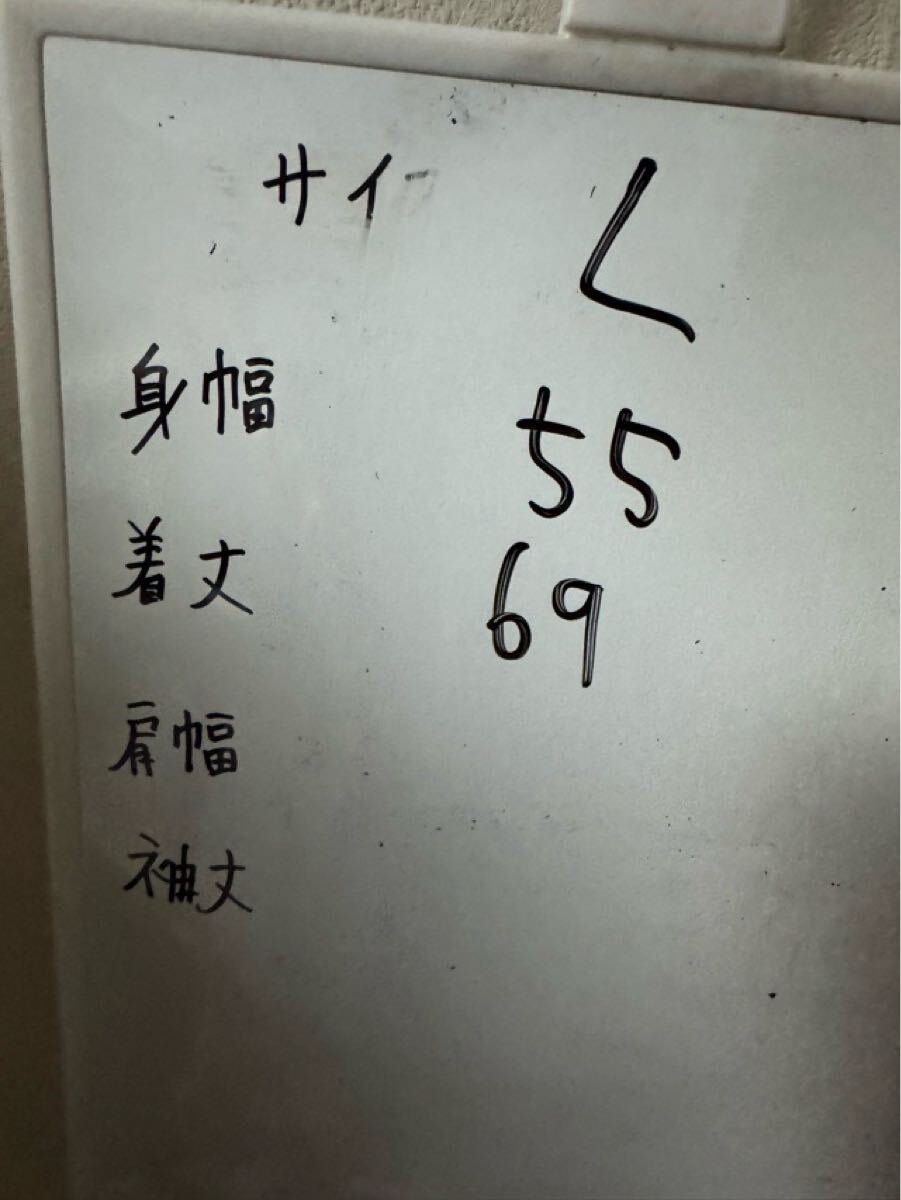 サイ L
身幅 55
着丈 69
肩幅
袖丈